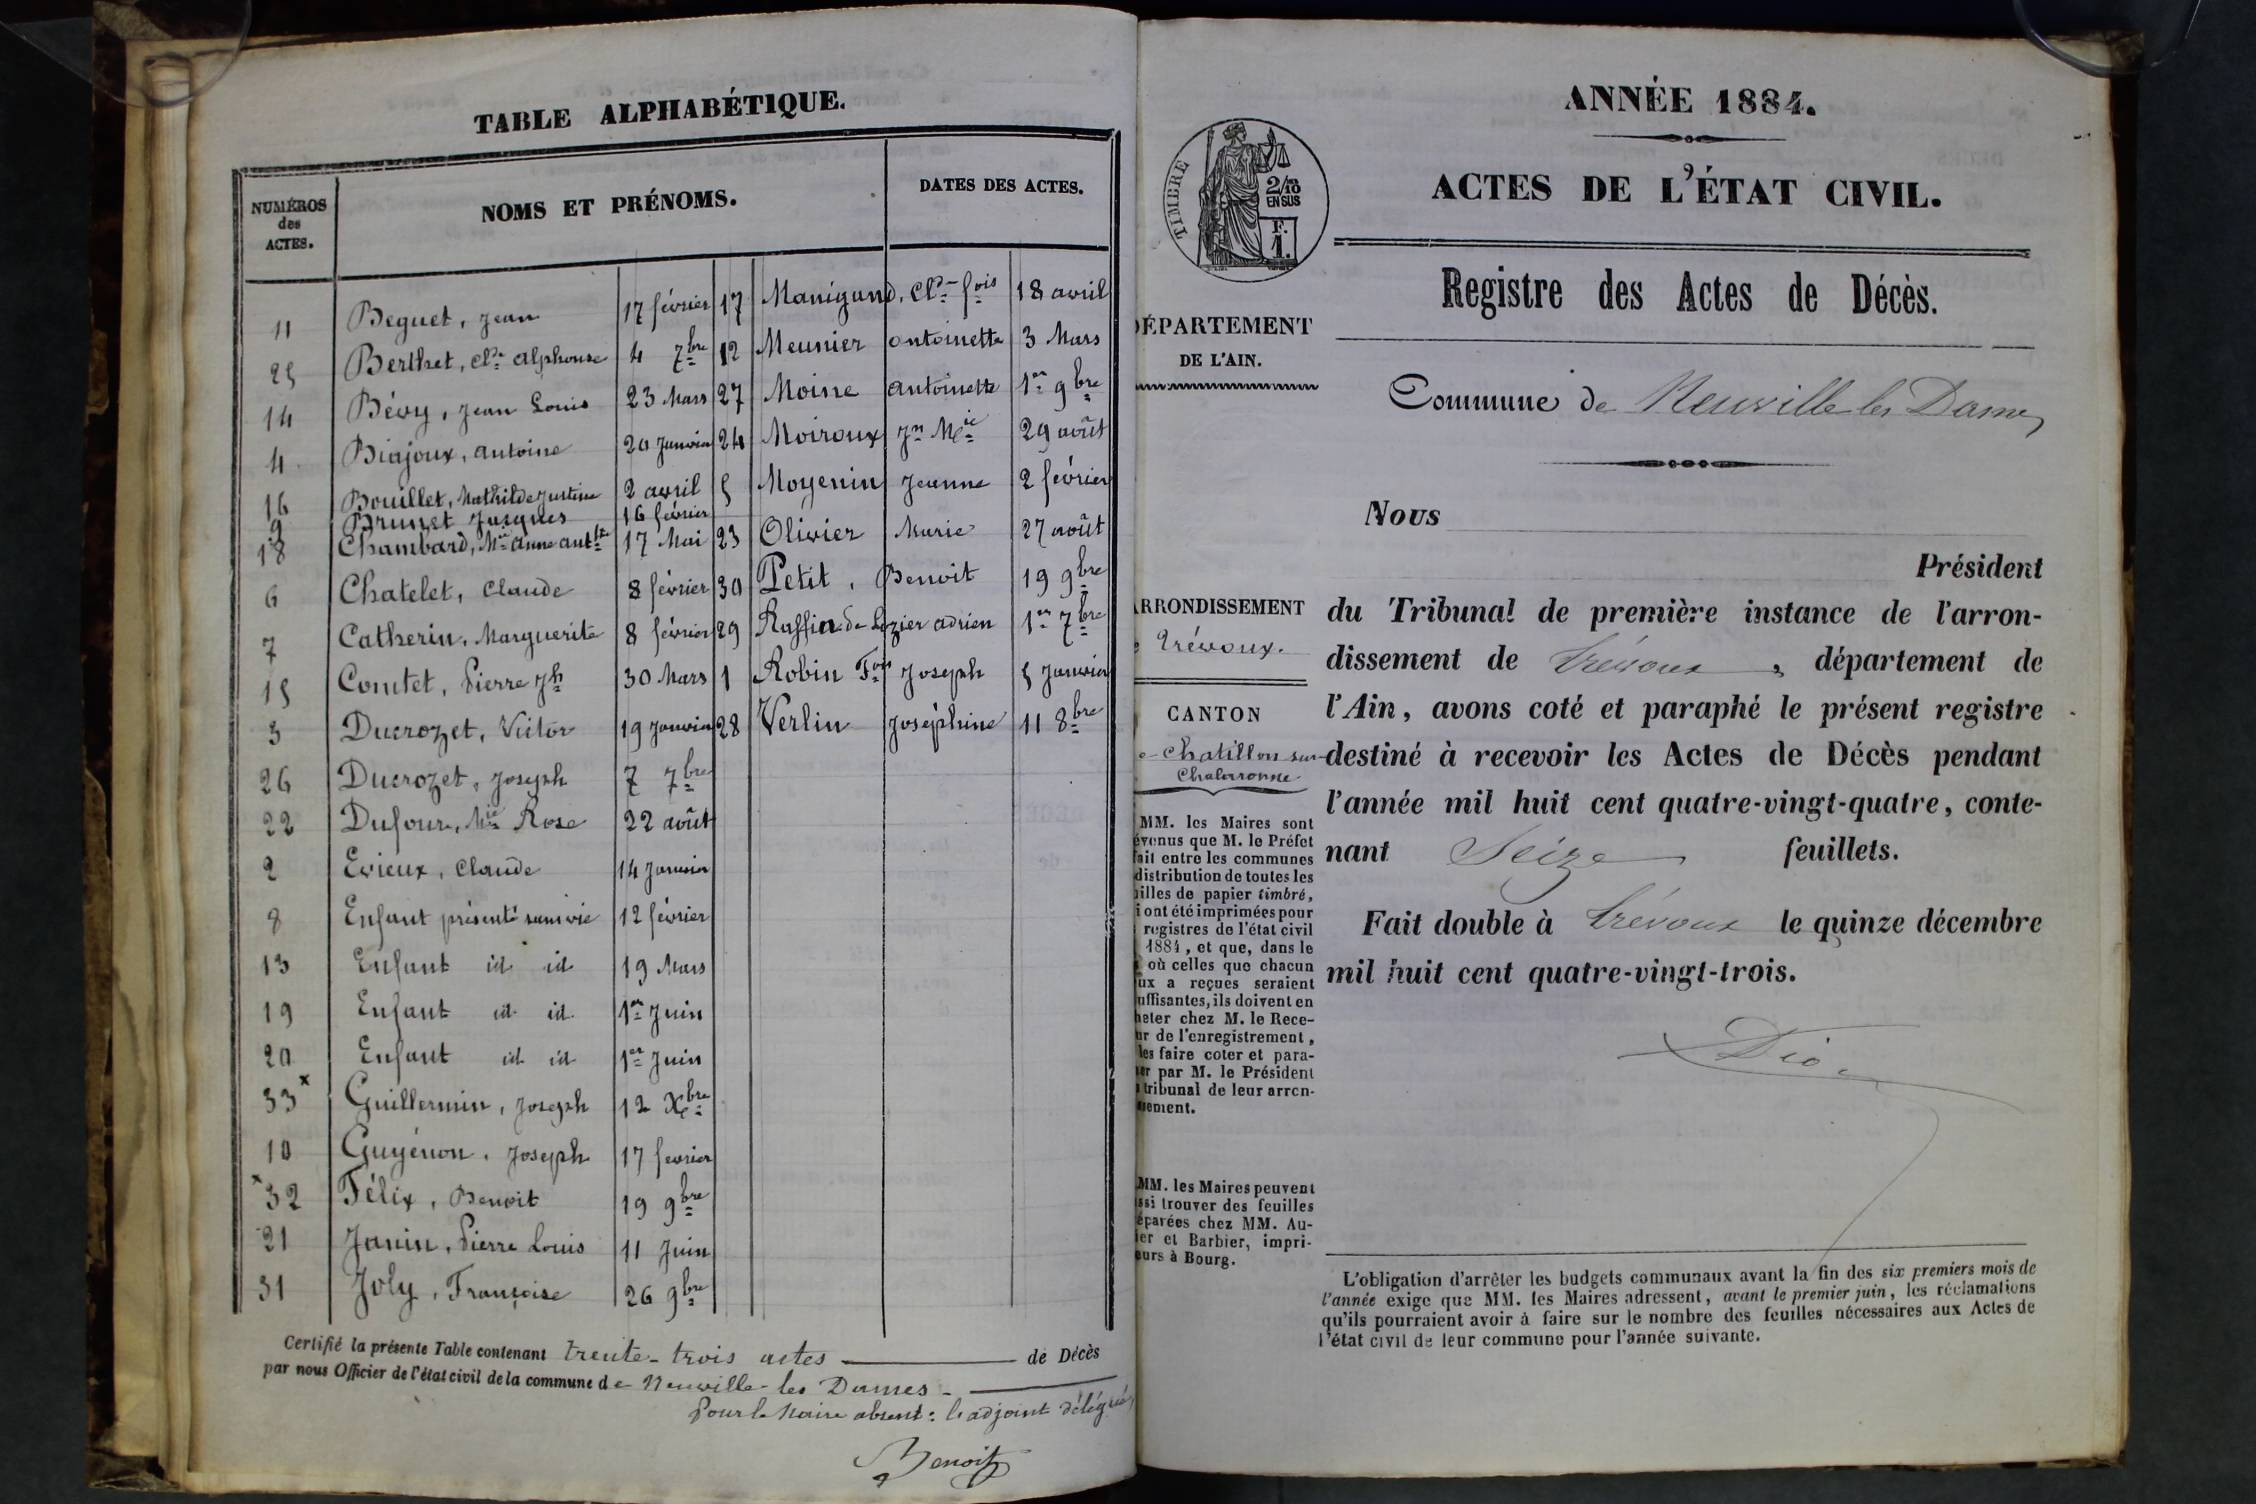 TABLE ALPHABÉTIQUE.
NUMÉROS des ACTES.
NOMS ET PRÉNOMS.
DATES DES ACTES.
11 Beguet, Jean 17 février
25 Berthet, Cde Alphonse 4 7bre
14 Bévy, Jean Louis 23 Mars
4 Biajoux, antoine 20 Janvier
16 Bouillet, Mathilde Justine 2 avril
9 Brunet Jacques 16 février
18 Chambard, Mie Anne antte 17 Mai
6 Chatelet, Claude 8 février
7 Catherin, Marguerite 8 février
15 Comtet, Pierre Jh 30 Mars
3 Ducrozet, Victor 19 Janvier
26 Ducrozet, Joseph 7 7bre
22 Dufour, Mie Rose 22 août
2 Evieux, Claude 14 Janvier
8 Enfant présenté sans vie 12 février
13 Enfant id id 19 Mars
19 Enfant id id 1er Juin
20 Enfant id id 1er Juin
33 x Guillermin, Joseph 12 Xbre
10 Guyénon, Joseph 17 fevrier
x 32 Félix, Benoit 19 9bre
21 Janin, Pierre Louis 11 Juin
31 Joly, Françoise 26 9bre
17 Manigand, Cde fois 18 avril
12 Meunier antoinette 3 Mars
27 Moine antoinette 1er 9bre
24 Moiroux Jn Mie 29 août
5 Moyenin Jeanne 2 février
23 Olivier Marie 27 août
30 Petit, Benoit 19 9bre
29 Raffin de Lozier adrien 1er 7bre
1 Robin Fois Joseph 5 Janvier
28 Verlin Joséphine 11 8bre
Certifié la présente Table contenant trente-trois actes de Décès
par nous Officier de l'état civil de la commune de Neuville-les Dames -
Pour le Maire absent: l'adjoint délégué,
Benoit
ANNÉE 1884.
ACTES DE L'ÉTAT CIVIL.
TIMBRE
2/10 EN SUS
F. 1.
Registre des Actes de Décès.
DÉPARTEMENT
DE L'AIN.
Commune de Neuville les Dames
Nous
Président
du Tribunal de première instance de l'arron-
dissement de Trévoux, département de
l'Ain, avons coté et paraphé le présent registre
destiné à recevoir les Actes de Décès pendant
l'année mil huit cent quatre-vingt-quatre, conte-
nant Seize feuillets.
Fait double à Trévoux le quinze décembre
mil huit cent quatre-vingt-trois.
ARRONDISSEMENT
Trévoux.
CANTON
e Chatillon sur
Chalaronne
MM. les Maires sont
évenus que M. le Préfet
fait entre les communes
distribution de toutes les
illes de papier timbré,
i ont été imprimées pour
registres de l'état civil
1884, et que, dans le
où celles que chacun
ux a reçues seraient
uffisantes, ils doivent en
heter chez M. le Rece-
ur de l'enregistrement,
les faire coter et para-
er par M. le Président
tribunal de leur arron-
sement.
MM. les Maires peuvent
ssi trouver des feuilles
éparées chez MM. Au-
ier et Barbier, impri-
eurs à Bourg.
L'obligation d'arrêter les budgets communaux avant la fin des six premiers mois de
l'année exige que MM. les Maires adressent, avant le premier juin, les réclamations
qu'ils pourraient avoir à faire sur le nombre des feuilles nécessaires aux Actes de
l'état civil de leur commune pour l'année suivante.